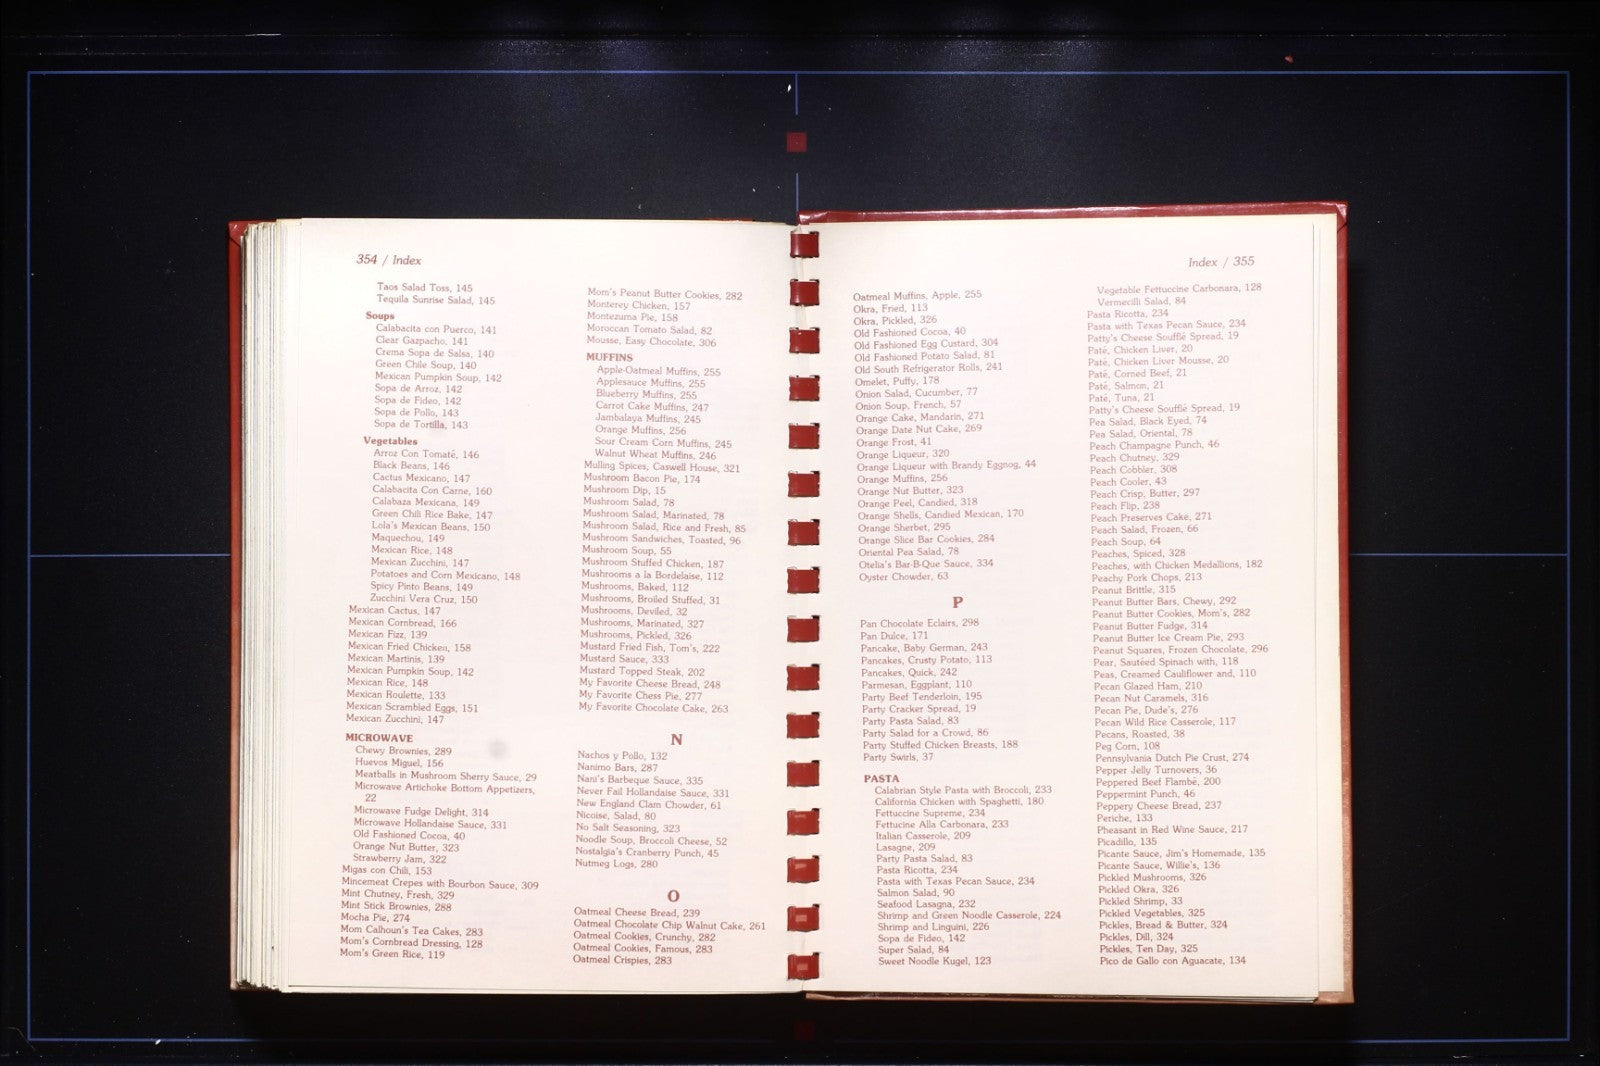 354 / Index
Taos Salad Toss, 145
Tequila Sunrise Salad, 145
Soups
Calabacita con Puerco, 141
Clear Gazpacho, 141
Crema Sopa de Salsa, 140
Green Chile Soup, 140
Mexican Pumpkin Soup, 142
Sopa de Arroz, 142
Sopa de Fideo, 142
Sopa de Pollo, 143
Sopa de Tortilla, 143
Vegetables
Arroz Con Tomaté, 146
Black Beans, 146
Cactus Mexicano, 147
Calabacita Con Carne, 160
Calabaza Mexicana, 149
Green Chili Rice Bake, 147
Lola's Mexican Beans, 150
Maquechou, 149
Mexican Rice, 148
Mexican Zucchini, 147
Potatoes and Corn Mexicano, 148
Spicy Pinto Beans, 149
Zucchini Vera Cruz, 150
Mexican Cactus, 147
Mexican Cornbread, 166
Mexican Fizz, 139
Mexican Fried Chicken, 158
Mexican Martinis, 139
Mexican Pumpkin Soup, 142
Mexican Rice, 148
Mexican Roulette, 133
Mexican Scrambled Eggs, 151
Mexican Zucchini, 147
MICROWAVE
Chewy Brownies, 289
Huevos Miguel, 156
Meatballs in Mushroom Sherry Sauce, 29
Microwave Artichoke Bottom Appetizers,
22
Microwave Fudge Delight, 314
Microwave Hollandaise Sauce, 331
Old Fashioned Cocoa, 40
Orange Nut Butter, 323
Strawberry Jam, 322
Migas con Chili, 153
Mincemeat Crepes with Bourbon Sauce, 309
Mint Chutney, Fresh, 329
Mint Stick Brownies, 288
Mocha Pie, 274
Mom Calhoun's Tea Cakes, 283
Mom's Cornbread Dressing, 128
Mom's Green Rice, 119
Mom's Peanut Butter Cookies, 282
Monterey Chicken, 157
Montezuma Pie, 158
Moroccan Tomato Salad, 82
Mousse, Easy Chocolate, 306
MUFFINS
Apple-Oatmeal Muffins, 255
Applesauce Muffins, 255
Blueberry Muffins, 255
Carrot Cake Muffins, 247
Jambalaya Muffins, 245
Orange Muffins, 256
Sour Cream Corn Muffins, 245
Walnut Wheat Muffins, 246
Mulling Spices, Caswell House, 321
Mushroom Bacon Pie, 174
Mushroom Dip, 15
Mushroom Salad, 78
Mushroom Salad, Marinated, 78
Mushroom Salad, Rice and Fresh, 85
Mushroom Sandwiches, Toasted, 96
Mushroom Soup, 55
Mushroom Stuffed Chicken, 187
Mushrooms a la Bordelaise, 112
Mushrooms, Baked, 112
Mushrooms, Broiled Stuffed, 31
Mushrooms, Deviled, 32
Mushrooms, Marinated, 327
Mushrooms, Pickled, 326
Mustard Fried Fish, Tom's, 222
Mustard Sauce, 333
Mustard Topped Steak, 202
My Favorite Cheese Bread, 248
My Favorite Chess Pie, 277
My Favorite Chocolate Cake, 263
N
Nachos y Pollo, 132
Nanimo Bars, 287
Nani's Barbeque Sauce, 335
Never Fail Hollandaise Sauce, 331
New England Clam Chowder, 61
Nicoise, Salad, 80
No Salt Seasoning, 323
Noodle Soup, Broccoli Cheese, 52
Nostalgia's Cranberry Punch, 45
Nutmeg Logs, 280
O
Oatmeal Cheese Bread, 239
Oatmeal Chocolate Chip Walnut Cake, 261
Oatmeal Cookies, Crunchy, 282
Oatmeal Cookies, Famous, 283
Oatmeal Crispies, 283
Index / 355
Oatmeal Muffins, Apple, 255
Okra, Fried, 113
Okra, Pickled, 326
Old Fashioned Cocoa, 40
Old Fashioned Egg Custard, 304
Old Fashioned Potato Salad, 81
Old South Refrigerator Rolls, 241
Omelet, Puffy, 178
Onion Salad, Cucumber, 77
Onion Soup, French, 57
Orange Cake, Mandarin, 271
Orange Date Nut Cake, 269
Orange Frost, 41
Orange Liqueur, 320
Orange Liqueur with Brandy Eggnog, 44
Orange Muffins, 256
Orange Nut Butter, 323
Orange Peel, Candied, 318
Orange Shells, Candied Mexican, 170
Orange Sherbet, 295
Orange Slice Bar Cookies, 284
Oriental Pea Salad, 78
Otelia's Bar-B-Que Sauce, 334
Oyster Chowder, 63
P
Pan Chocolate Eclairs, 298
Pan Dulce, 171
Pancake, Baby German, 243
Pancakes, Crusty Potato, 113
Pancakes, Quick, 242
Parmesan, Eggplant, 110
Party Beef Tenderloin, 195
Party Cracker Spread, 19
Party Pasta Salad, 83
Party Salad for a Crowd, 86
Party Stuffed Chicken Breasts, 188
Party Swirls, 37
PASTA
Calabrian Style Pasta with Broccoli, 233
California Chicken with Spaghetti, 180
Fettuccine Supreme, 234
Fettucine Alla Carbonara, 233
Italian Casserole, 209
Lasagne, 209
Party Pasta Salad, 83
Pasta Ricotta, 234
Pasta with Texas Pecan Sauce, 234
Salmon Salad, 90
Seafood Lasagna, 232
Shrimp and Green Noodle Casserole, 224
Shrimp and Linguini, 226
Sopa de Fideo, 142
Super Salad, 84
Sweet Noodle Kugel, 123
Vegetable Fettuccine Carbonara, 128
Vermecilli Salad, 84
Pasta Ricotta, 234
Pasta with Texas Pecan Sauce, 234
Patty's Cheese Soufflé Spread, 19
Paté, Chicken Liver, 20
Paté, Chicken Liver Mousse, 20
Paté, Corned Beef, 21
Paté, Salmon, 21
Paté, Tuna, 21
Patty's Cheese Soufflé Spread, 19
Pea Salad, Black Eyed, 74
Pea Salad, Oriental, 78
Peach Champagne Punch, 46
Peach Chutney, 329
Peach Cobbler, 308
Peach Cooler, 43
Peach Crisp, Butter, 297
Peach Flip, 238
Peach Preserves Cake, 271
Peach Salad, Frozen, 66
Peach Soup, 64
Peaches, Spiced, 328
Peaches, with Chicken Medallions, 182
Peachy Pork Chops, 213
Peanut Brittle, 315
Peanut Butter Bars, Chewy, 292
Peanut Butter Cookies, Mom's, 282
Peanut Butter Fudge, 314
Peanut Butter Ice Cream Pie, 293
Peanut Squares, Frozen Chocolate, 296
Pear, Sautéed Spinach with, 118
Peas, Creamed Cauliflower and, 110
Pecan Glazed Ham, 210
Pecan Nut Caramels, 316
Pecan Pie, Dude's, 276
Pecan Wild Rice Casserole, 117
Pecans, Roasted, 38
Peg Corn, 108
Pennsylvania Dutch Pie Crust, 274
Pepper Jelly Turnovers, 36
Peppered Beef Flambé, 200
Peppermint Punch, 46
Peppery Cheese Bread, 237
Periche, 133
Pheasant in Red Wine Sauce, 217
Picadillo, 135
Picante Sauce, Jim's Homemade, 135
Picante Sauce, Willie's, 136
Pickled Mushrooms, 326
Pickled Okra, 326
Pickled Shrimp, 33
Pickled Vegetables, 325
Pickles, Bread & Butter, 324
Pickles, Dill, 324
Pickles, Ten Day, 325
Pico de Gallo con Aguacate, 134